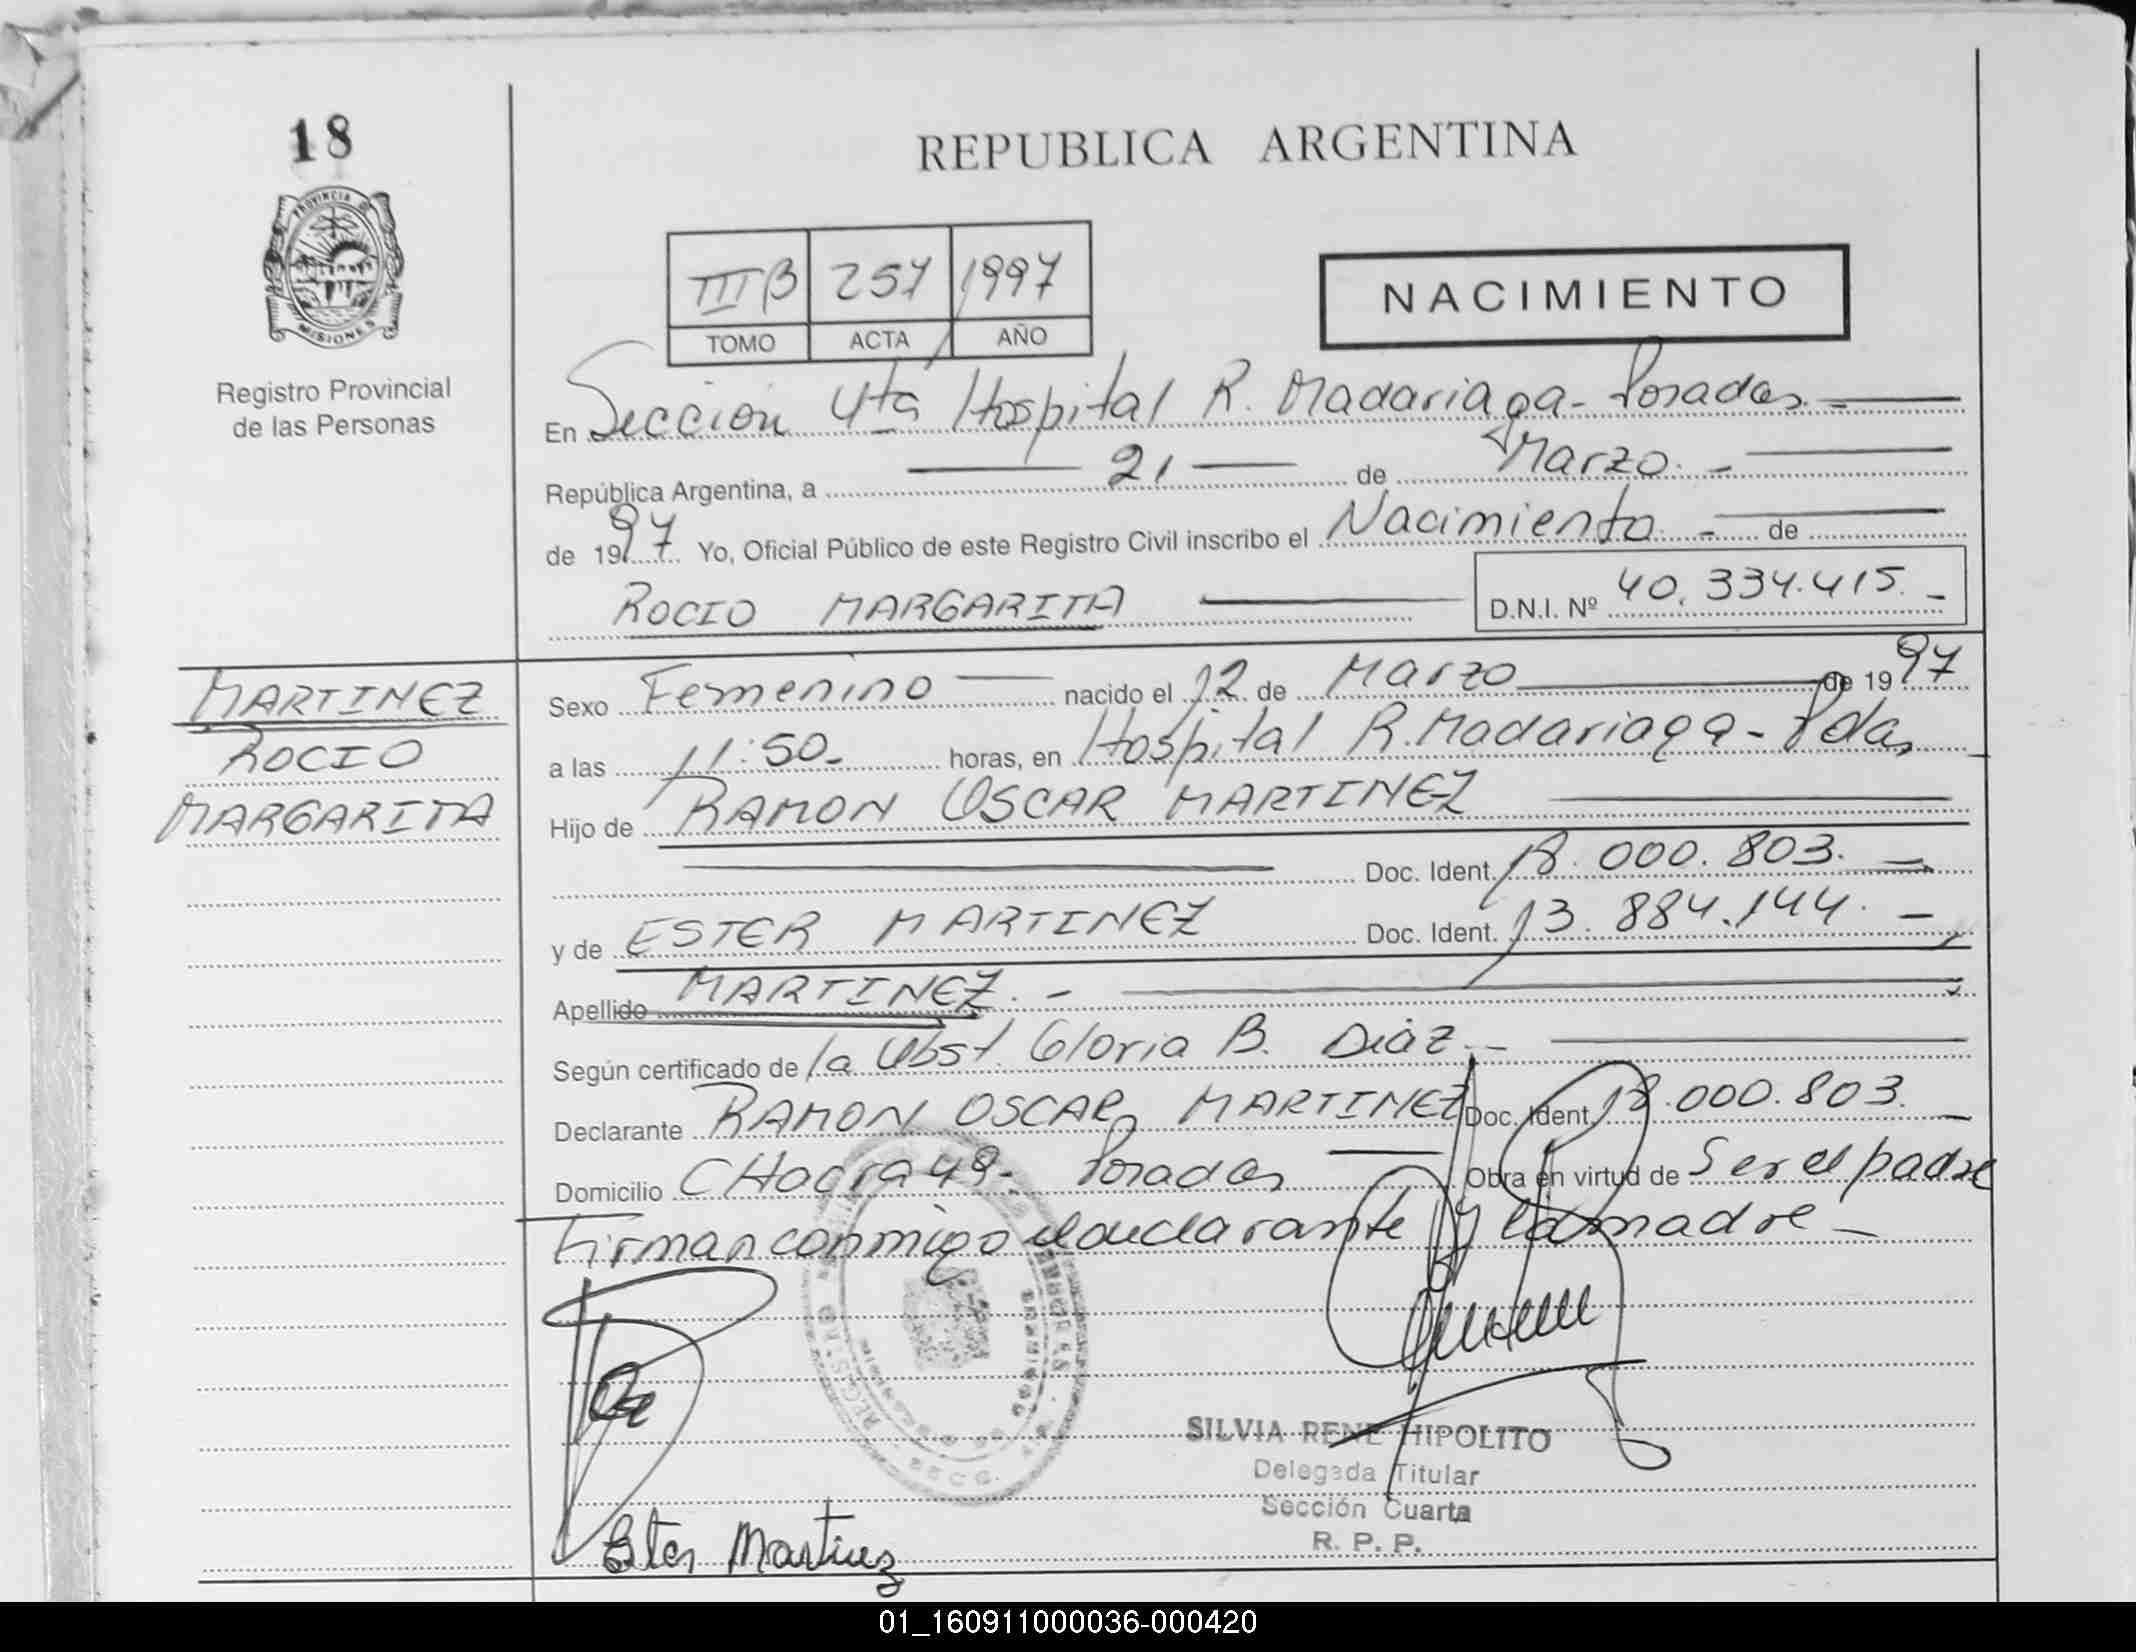 18
PROVINCIA DE
MISIONES
Registro Provincial
de las Personas
REPUBLICA ARGENTINA
III B 257 1997
TOMO ACTA AÑO
NACIMIENTO
En Sección 4ta Hospital R. Madariaga - Posadas. -
República Argentina, a 21 de Marzo. -
de 1997 Yo, Oficial Público de este Registro Civil inscribo el Nacimiento. - de
ROCIO MARGARITA D.N.I. Nº 40.334.415. -
MARTINEZ
ROCIO
MARGARITA
Sexo Femenino nacido el 12 de Marzo de 1997
a las 11:50. horas, en Hospital R. Madariaga - Pdas
Hijo de RAMON OSCAR MARTINEZ
Doc. Ident. 18.000.803. -
y de ESTER MARTINEZ Doc. Ident. 13.884.144. -
Apellido MARTINEZ. -
Según certificado de la Obst. Gloria B. Diaz. -
Declarante RAMON OSCAR MARTINEZ Doc. Ident. 18.000.803. -
Domicilio CHacra 49 - Posadas Obra en virtud de Ser el padre
Firman conmigo el declarante y la madre -
SILVIA RENE HIPOLITO
Delegada Titular
Sección Cuarta
R. P. P.
Ester Martinez
01_160911000036-000420